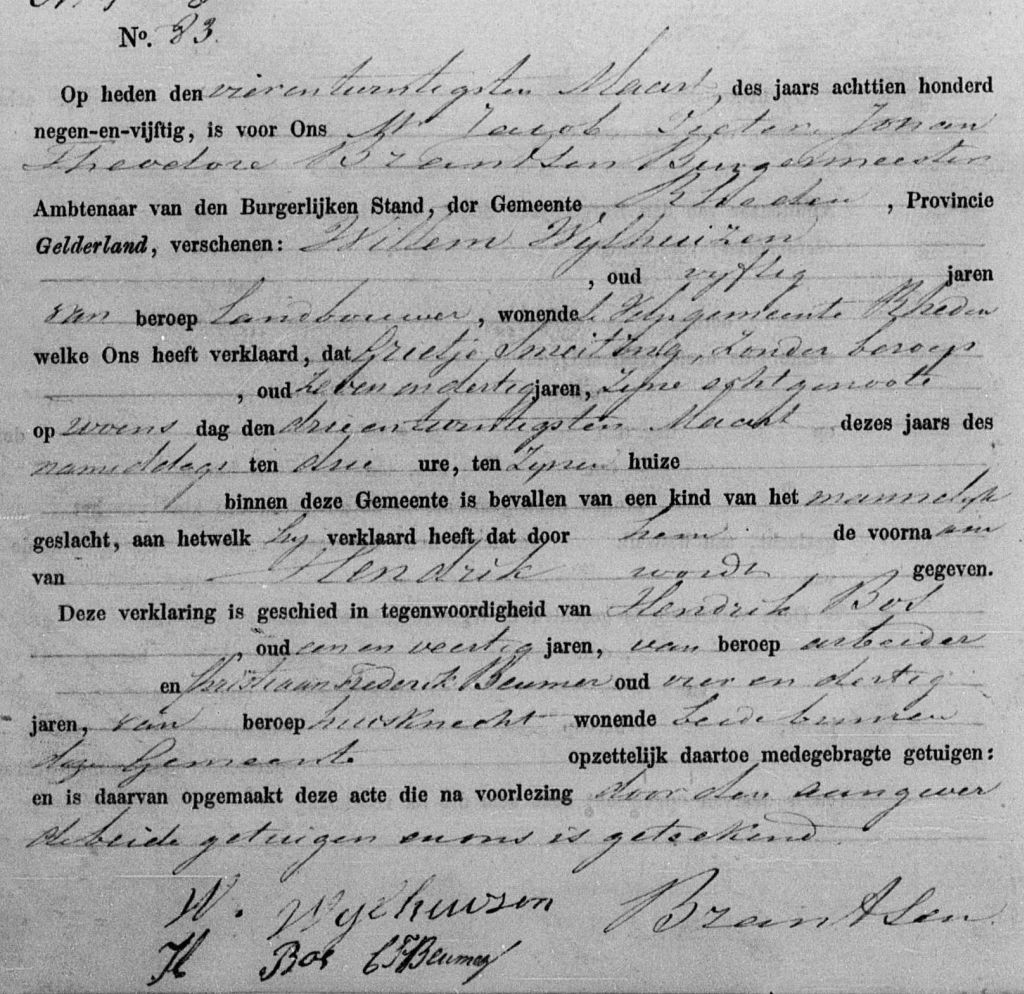 No. 83.
Op heden den vierentwintigsten Maart, des jaars achttien honderd
negen-en-vijftig, is voor Ons Mr Jacob Pieter Johan
Theodore Brantsen Burgemeester
Ambtenaar van den Burgerlijken Stand, der Gemeente Rheden, Provincie
Gelderland, verschenen: Willem Wijlhuizen
, oud vyftig jaren
van beroep Landbouwer, wonende te Velp gemeente Rheden
welke Ons heeft verklaard, dat Grietje Smeitting, Zonder beroep
, oud Zeven en dertig jaren, Zyne echtgenoote
op woens dag den drieentwintigsten Maart dezes jaars des
namiddags ten drie ure, ten Zynen huize
binnen deze Gemeente is bevallen van een kind van het mannelijk
geslacht, aan hetwelk hij verklaard heeft dat door hem de voorna am
van Hendrik wordt gegeven.
Deze verklaring is geschied in tegenwoordigheid van Hendrik Bos
, oud een en veertig jaren, van beroep arbeider
en Christiaan Frederik Beumer oud vier en dertig
jaren, van beroep huisknecht wonende beide binnen
deze Gemeente opzettelijk daartoe medegebragte getuigen:
en is daarvan opgemaakt deze acte die na voorlezing door den aangever
de beide getuigen en ons is geteekend.
W. Wylhuizen Brantsen
H Bos C F Beumer